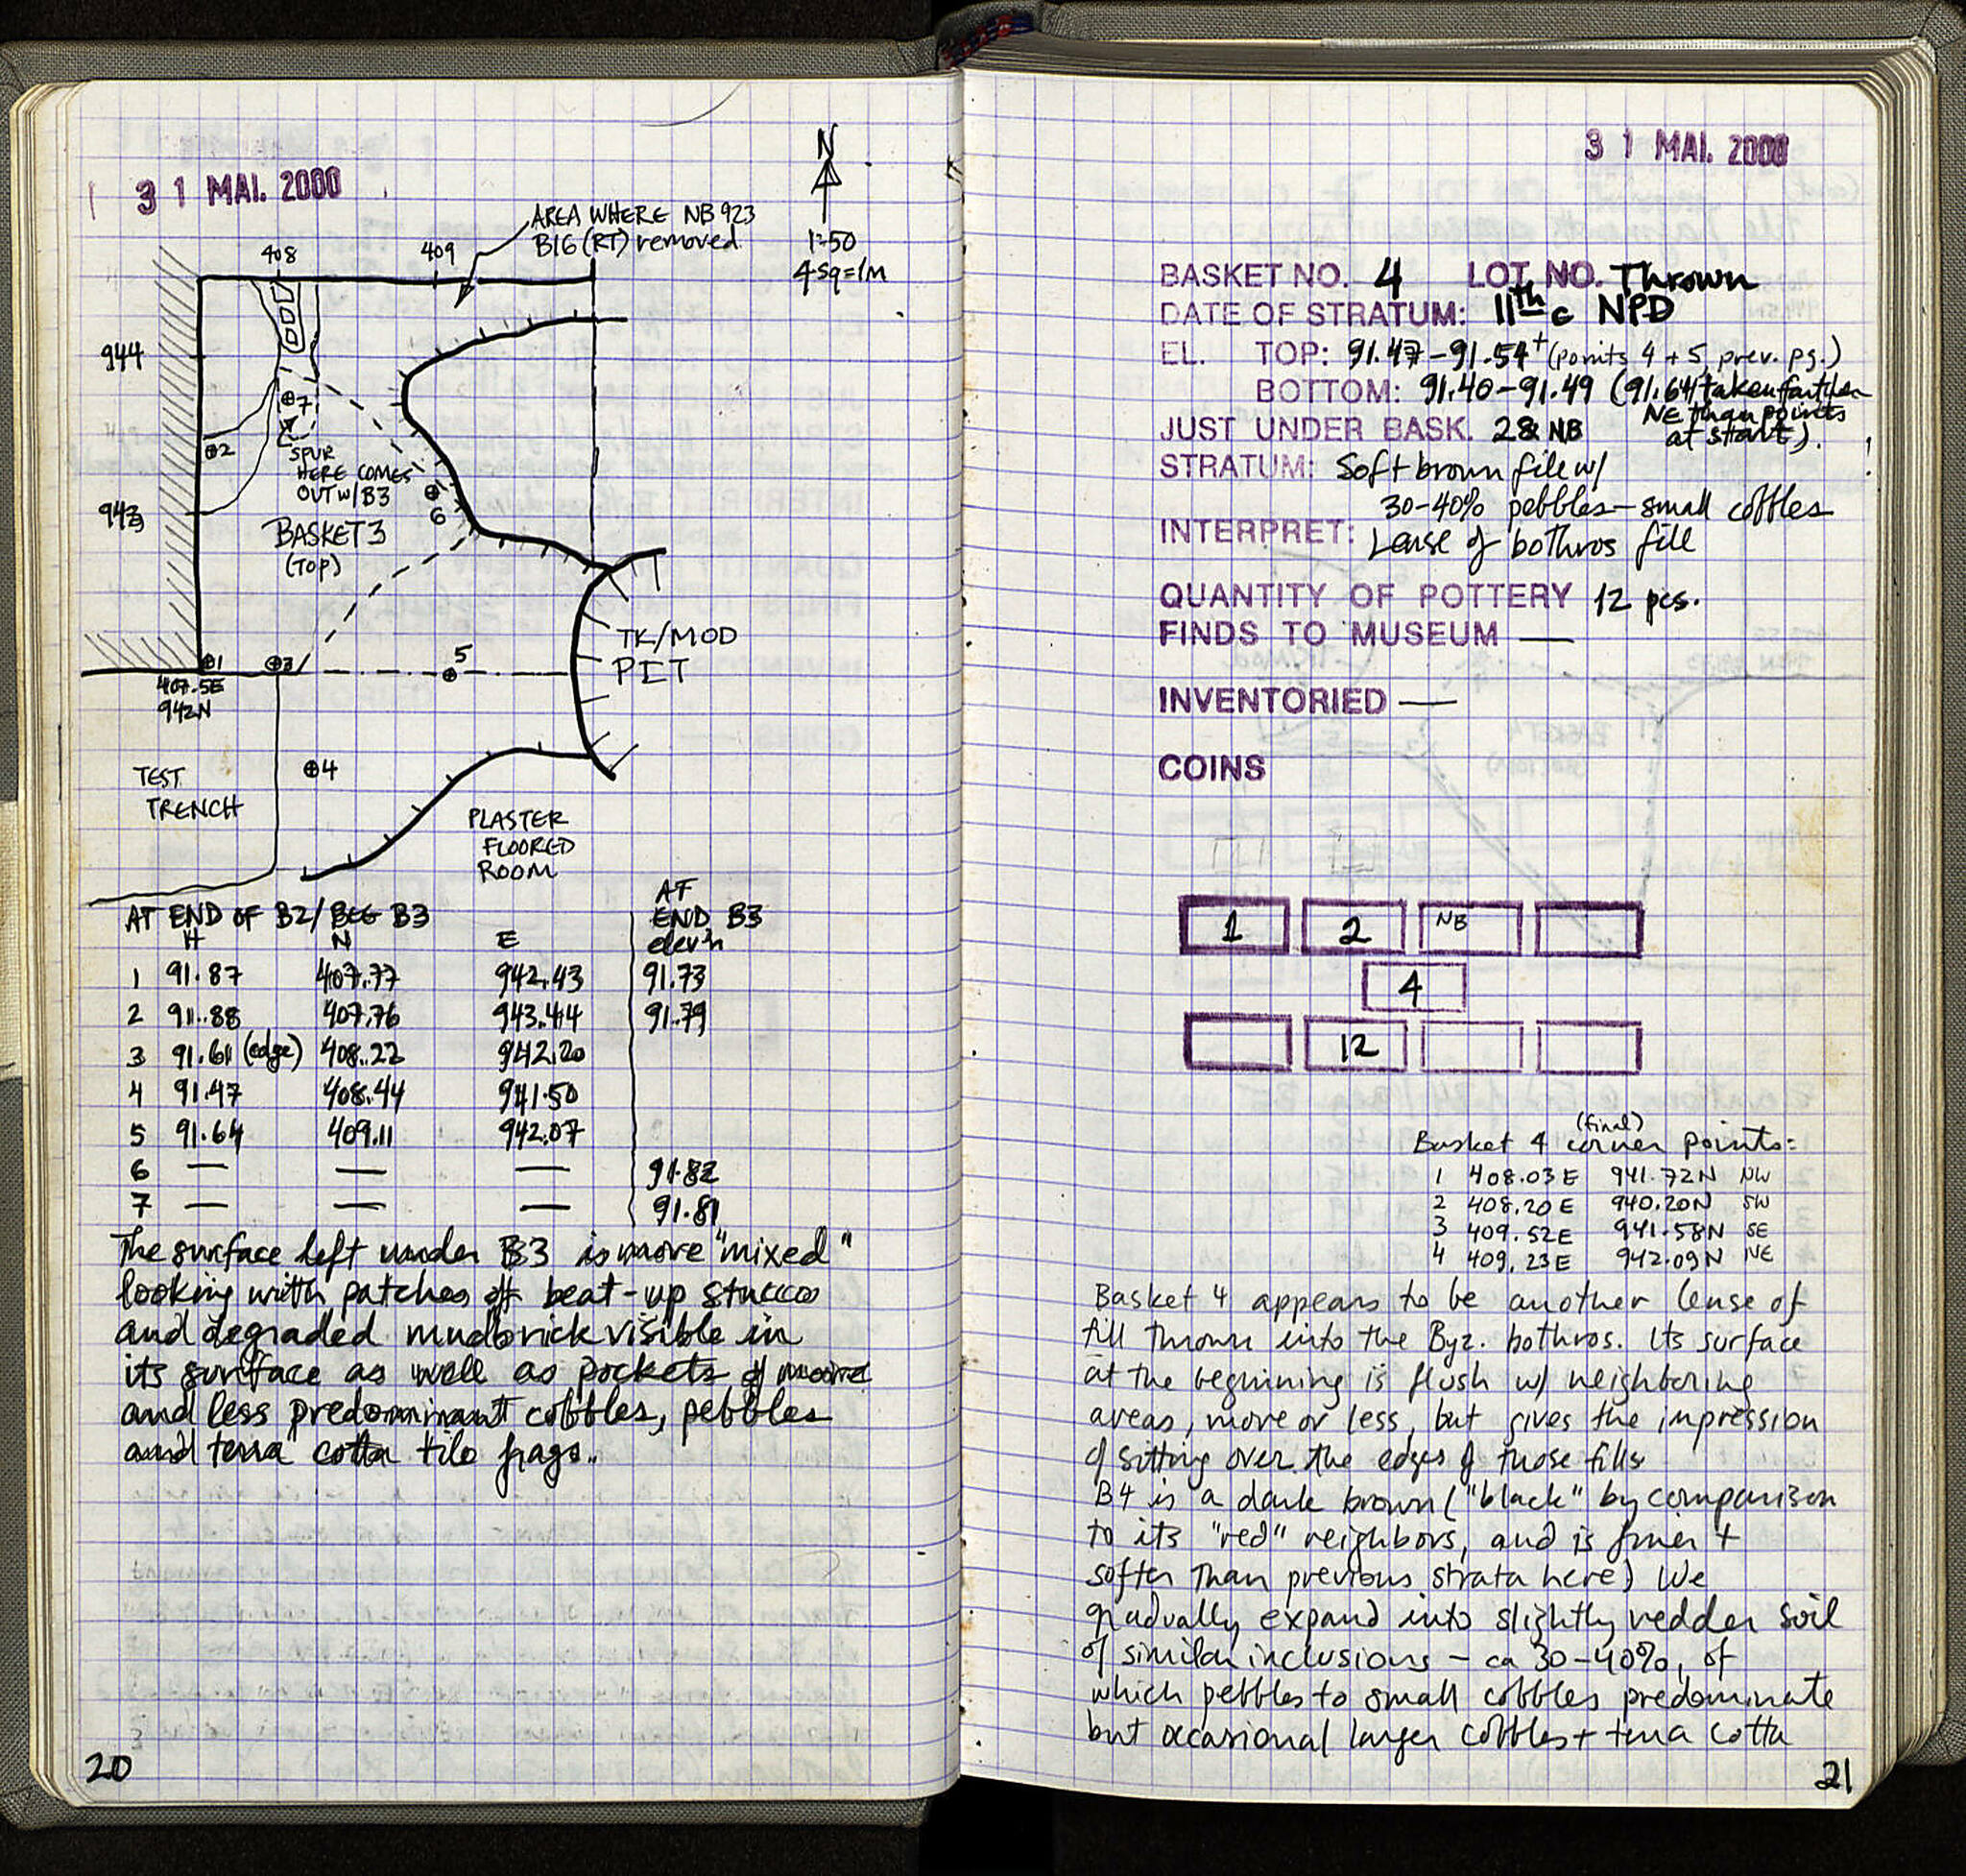 31 MAI. 2000
N
1:50
4 sq = 1M
AREA WHERE NB 923
B16 (RT) removed
408
409
944
943
7
2
SPUR
HERE COMES
OUT W/B3
6
BASKET 3
(TOP)
TK/MOD
PIT
1
3
5
407.5E
942N
4
TEST
TRENCH
PLASTER
FLOORED
ROOM
AT END OF B2/BEG B3
AT
END B3
H N E elev'n
1 91.87 407.77 942.43 91.73
2 91.88 407.76 943.44 91.79
3 91.61 (edge) 408.22 942.20
4 91.47 408.44 941.50
5 91.64 409.11 942.07
6 — — — 91.82
7 — — — 91.81
The surface left under B3 is more "mixed"
looking with patches of beat-up stucco
and degraded mudbrick visible in
its surface as well as pockets of more
and less predominant cobbles, pebbles
and terra cotta tile frags.
20
31 MAI. 2000
BASKET NO. 4 LOT NO. Thrown
DATE OF STRATUM: 11th c NPD
EL. TOP: 91.47-91.54+ (points 4+5, prev. pg.)
BOTTOM: 91.40-91.49 (91.64 taken farther
NE than points
at start).
JUST UNDER BASK. 2 & NB
STRATUM: Soft brown file w/
30-40% pebbles - small cobbles
INTERPRET: Lense of bothros fill
QUANTITY OF POTTERY 12 pcs.
FINDS TO MUSEUM —
INVENTORIED —
COINS
1 2 NB
4
12
Basket 4 (final) corner points:
1 408.03E 941.72N NW
2 408.20E 940.20N SW
3 409.52E 941.58N SE
4 409.23E 942.09N NE
Basket 4 appears to be another lense of
fill thrown into the Byz. bothros. Its surface
at the beginning is flush w/ neighboring
areas, more or less, but gives the impression
of sitting over the edges of those fills
B4 is a dark brown ("black" by comparison
to its "red" neighbors, and is finer +
softer than previous strata here) We
gradually expand into slightly redder soil
of similar inclusions - ca 30-40%, of
which pebbles to small cobbles predominate
but occasional larger cobbles + terra cotta
21